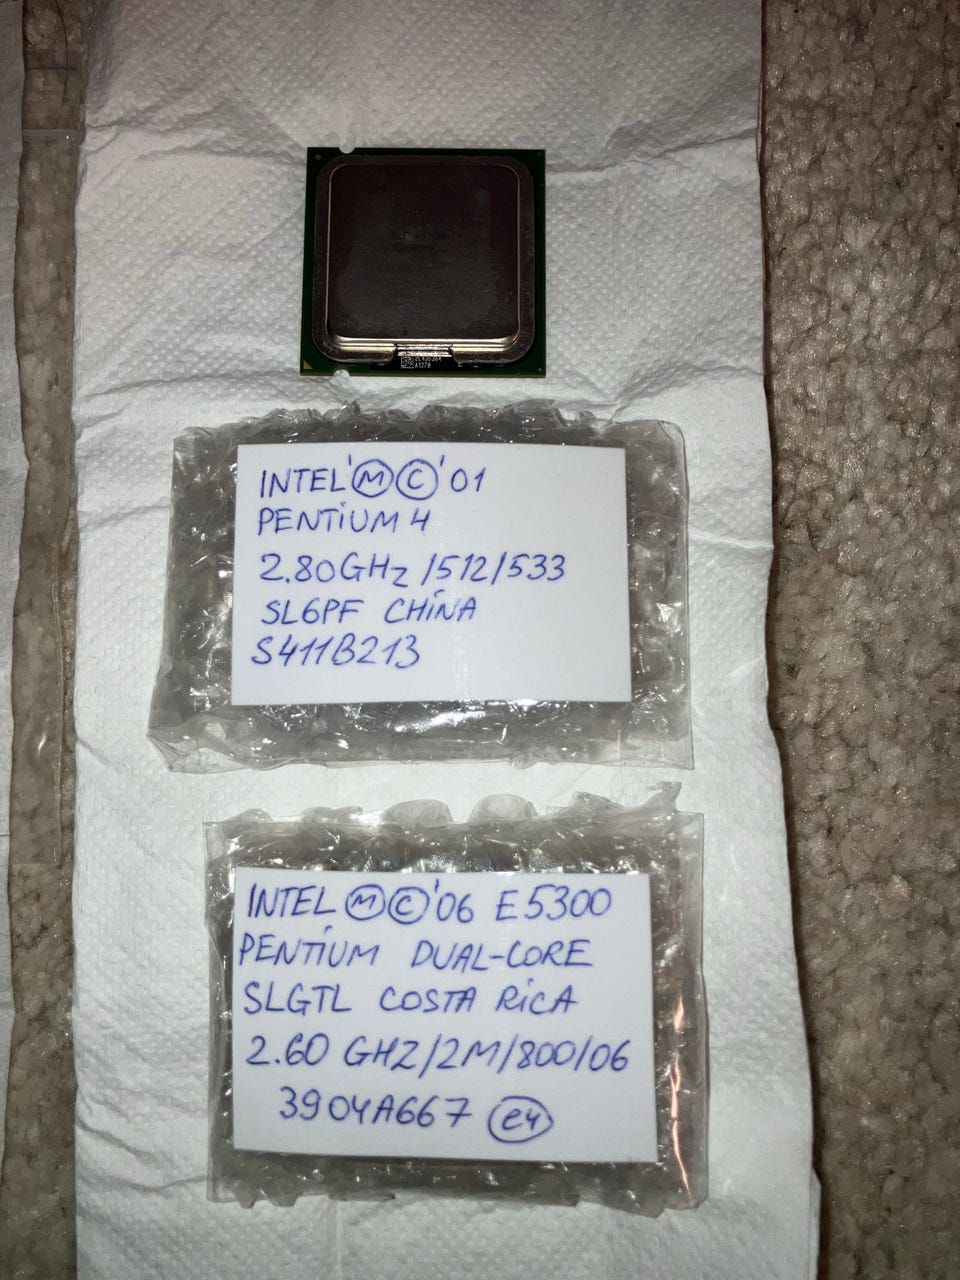 2L435364
A1270
INTEL 'Ⓜ Ⓒ '01
PENTIUM 4
2.80GHz/512/533
SL6PF CHINA
S411B213
INTEL Ⓜ Ⓒ '06 E5300
PENTIUM DUAL-CORE
SLGTL COSTA RICA
2.60 GHZ/2M/800/06
3904A667 e4